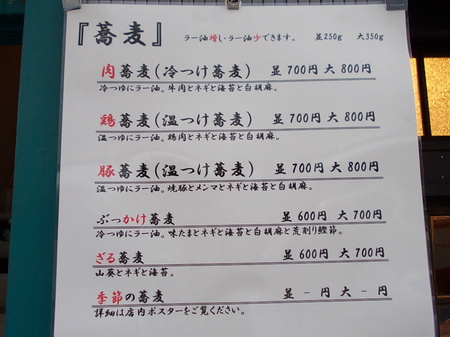 『蕎麦』 ラー油増し・ラー油少できます。 並250g 大350g
肉蕎麦(冷つけ蕎麦) 並 700円 大 800円
冷つゆにラー油。牛肉とネギと海苔と白胡麻。
鶏蕎麦(温つけ蕎麦) 並 700円 大 800円
温つゆにラー油。鶏肉とネギと海苔と白胡麻。
豚蕎麦(温つけ蕎麦) 並 700円 大 800円
温つゆにラー油。焼豚とメンマとネギと海苔と白胡麻。
ぶっかけ蕎麦 並 600円 大 700円
冷つゆにラー油。味たまとネギと海苔と白胡麻と荒削り鰹節。
ざる蕎麦 並 600円 大 700円
山葵とネギと海苔。
季節の蕎麦 並 -円 大 -円
詳細は店内ポスターをご覧ください。